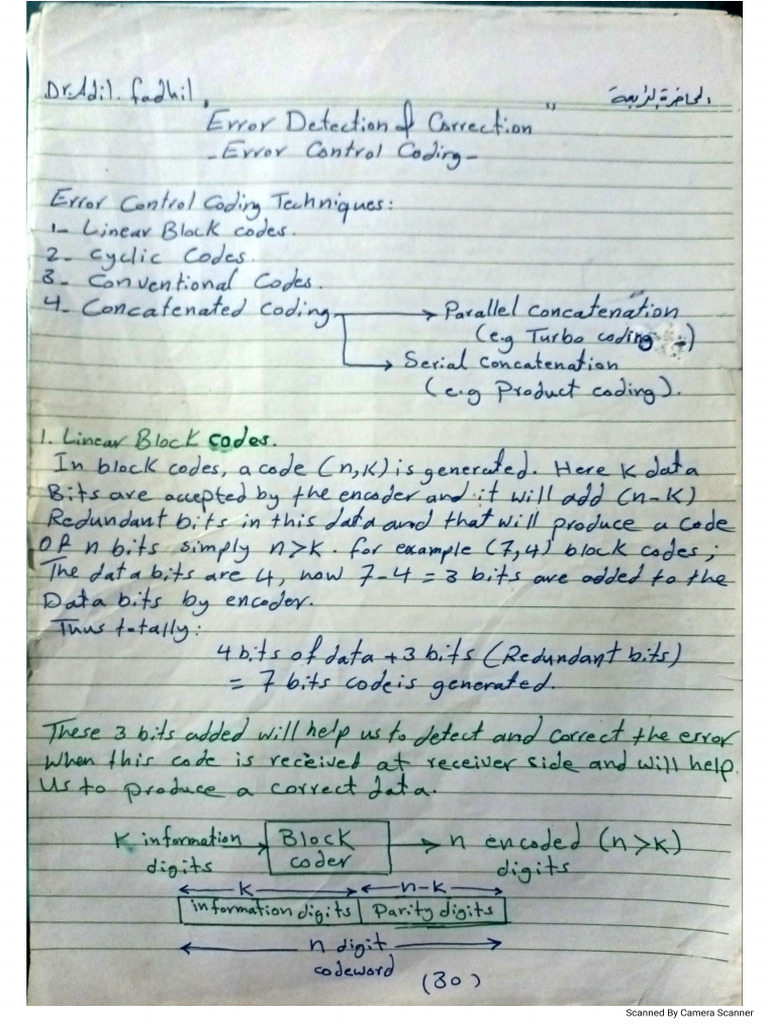 Dr. Adil. fadhil
المحاضرة الرابعة
"Error Detection & Correction"
- Error Control Coding -
Error Control Coding Techniques:
1- Linear Block codes.
2- Cyclic Codes.
3- Conventional Codes.
4- Concatenated Coding → Parallel concatenation
(e.g Turbo coding -)
→ Serial concatenation
(e.g Product coding).
1. Linear Block codes.
In block codes, a code (n,K) is generated. Here K data
Bits are accepted by the encoder and it will add (n-K)
Redundant bits in this data and that will produce a code
Of n bits simply n>k. for example (7,4) block codes;
The data bits are 4, now 7-4 = 3 bits are added to the
Data bits by encoder.
Thus totally:
4 bits of data + 3 bits (Redundant bits)
= 7 bits code is generated.
These 3 bits added will help us to detect and correct the error
When this code is received at receiver side and will help
Us to produce a correct data.
K information digits → Block coder → n encoded (n>k) digits
k n-k
information digits | Parity digits
n digit
codeword
(30)
Scanned By Camera Scanner